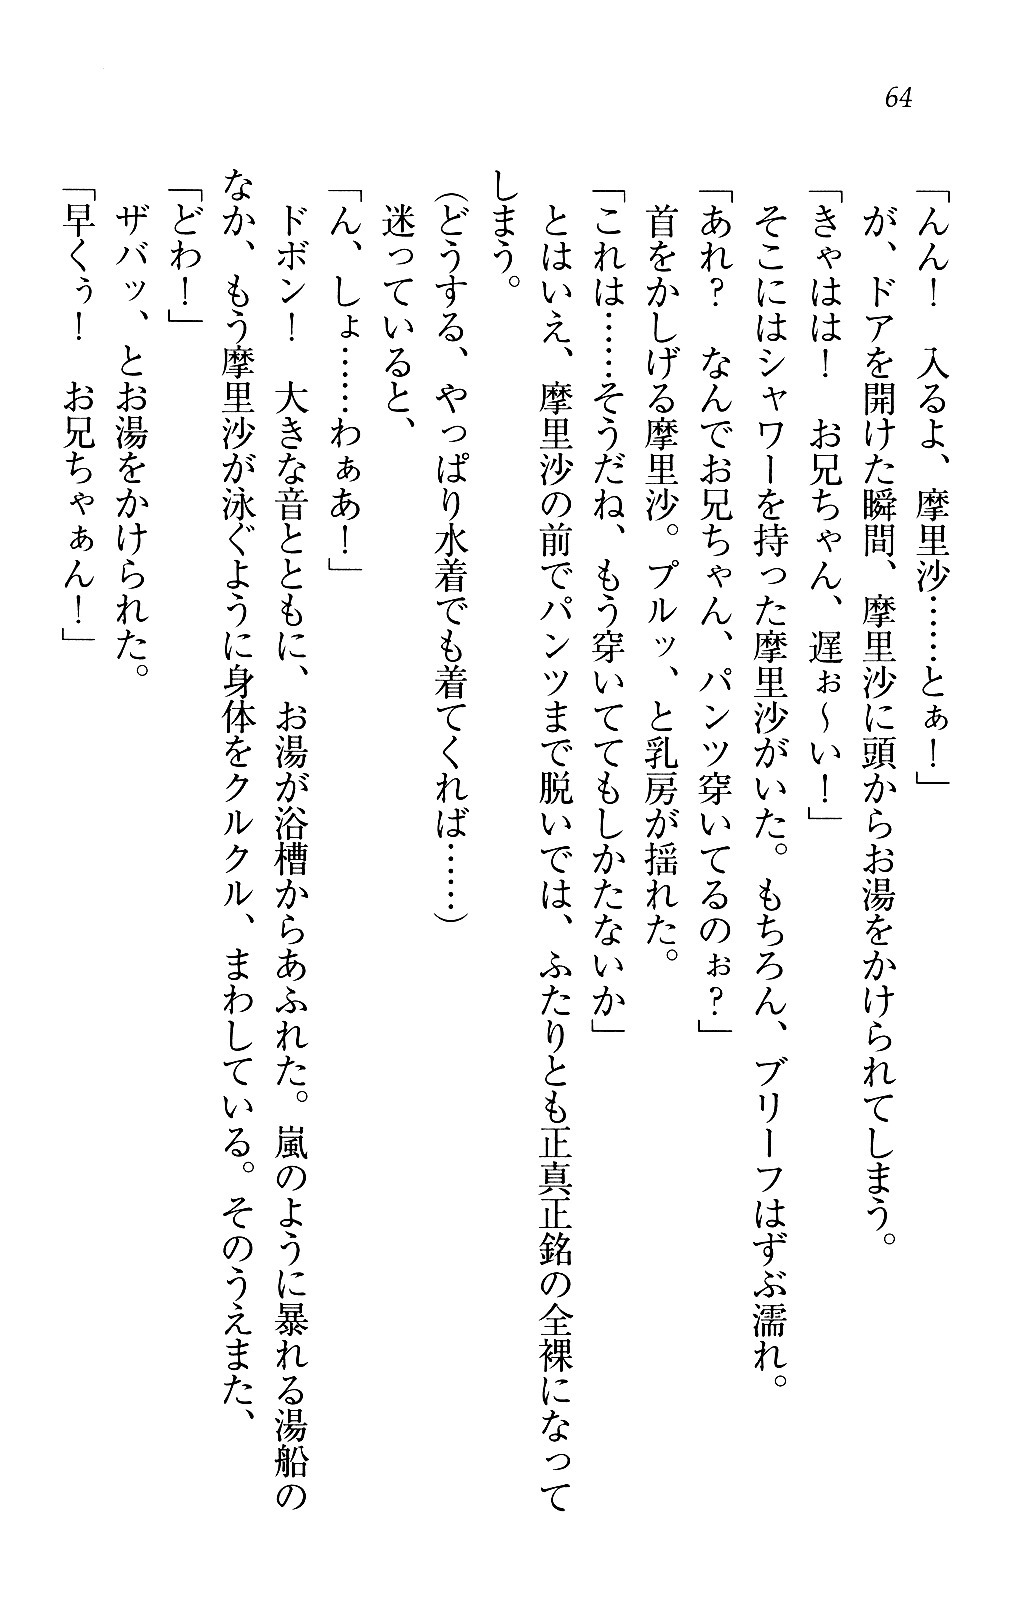 64
「んん！　入るよ、摩里沙……とぁ！」
が、ドアを開けた瞬間、摩里沙に頭からお湯をかけられてしまう。
「きゃはは！　お兄ちゃん、遅ぉ～い！」
そこにはシャワーを持った摩里沙がいた。もちろん、ブリーフはずぶ濡れ。
「あれ？　なんでお兄ちゃん、パンツ穿いてるのぉ？」
首をかしげる摩里沙。プルッ、と乳房が揺れた。
「これは……そうだね、もう穿いててもしかたないか」
とはいえ、摩里沙の前でパンツまで脱いでは、ふたりとも正真正銘の全裸になって
しまう。
（どうする、やっぱり水着でも着てくれば……）
迷っていると、
「ん、しょ……わぁあ！」
ドボン！　大きな音とともに、お湯が浴槽からあふれた。嵐のように暴れる湯船の
なか、もう摩里沙が泳ぐように身体をクルクル、まわしている。そのうえまた、
「どわ！」
ザバッ、とお湯をかけられた。
「早くぅ！　お兄ちゃぁん！」